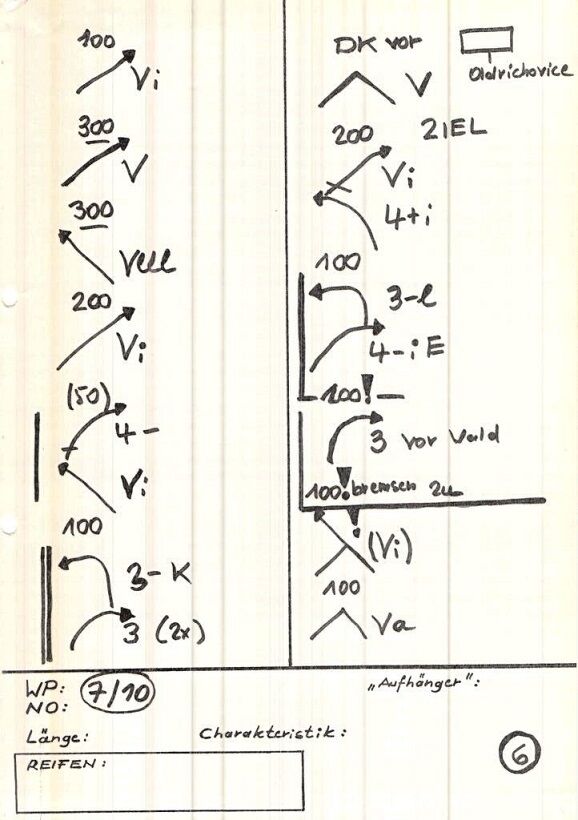 100
Vi
300
V
300
Vell
200
Vi
(50)
4-
Vi
100
3-K
3 (2x)
DK vor
Oldrichovice
V
200 ZIEL
Vi
4+i
100
3-l
4-iE
200!
3 vor Wald
100! bremsen zu
(Vi)
100
Va
WP: 7/10
NO:
Länge:
Charakteristik:
„Aufhänger":
REIFEN:
6